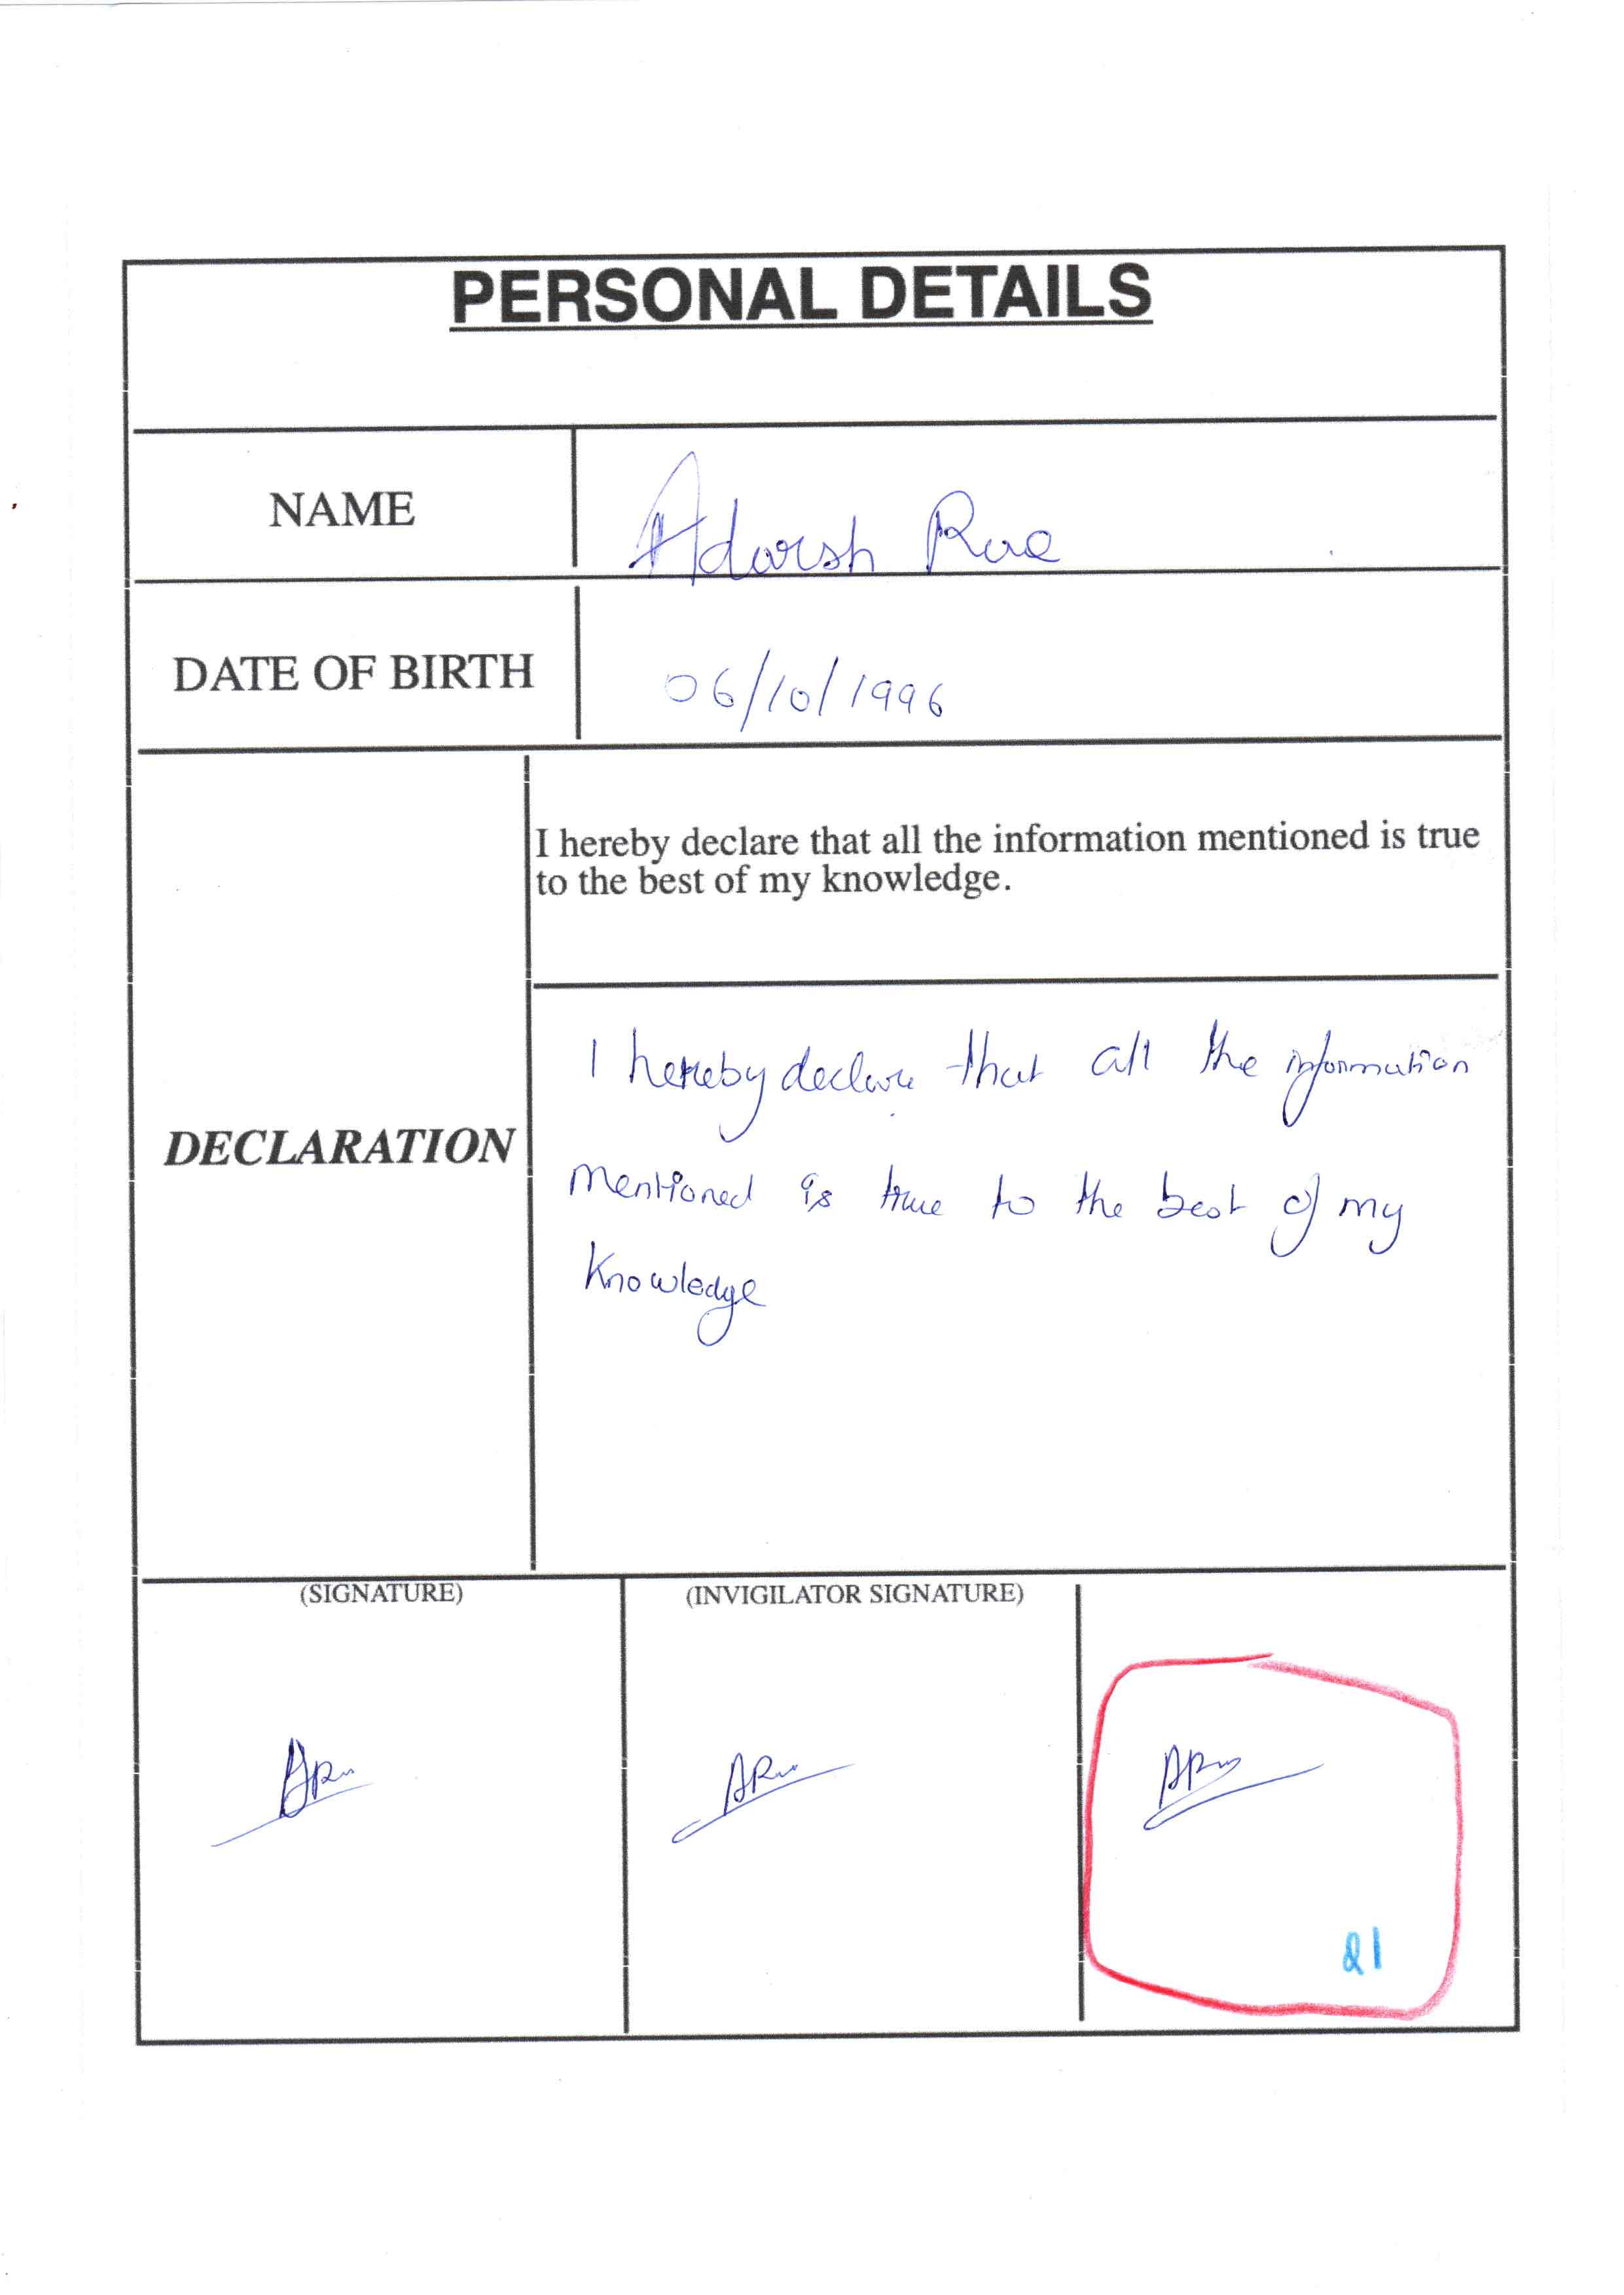 PERSONAL DETAILS
NAME
Adarsh Rae
DATE OF BIRTH
06/10/1996
I hereby declare that all the information mentioned is true
to the best of my knowledge.
DECLARATION
I hereby declare that all the information
mentioned is true to the best of my
knowledge
(SIGNATURE)
(INVIGILATOR SIGNATURE)
21